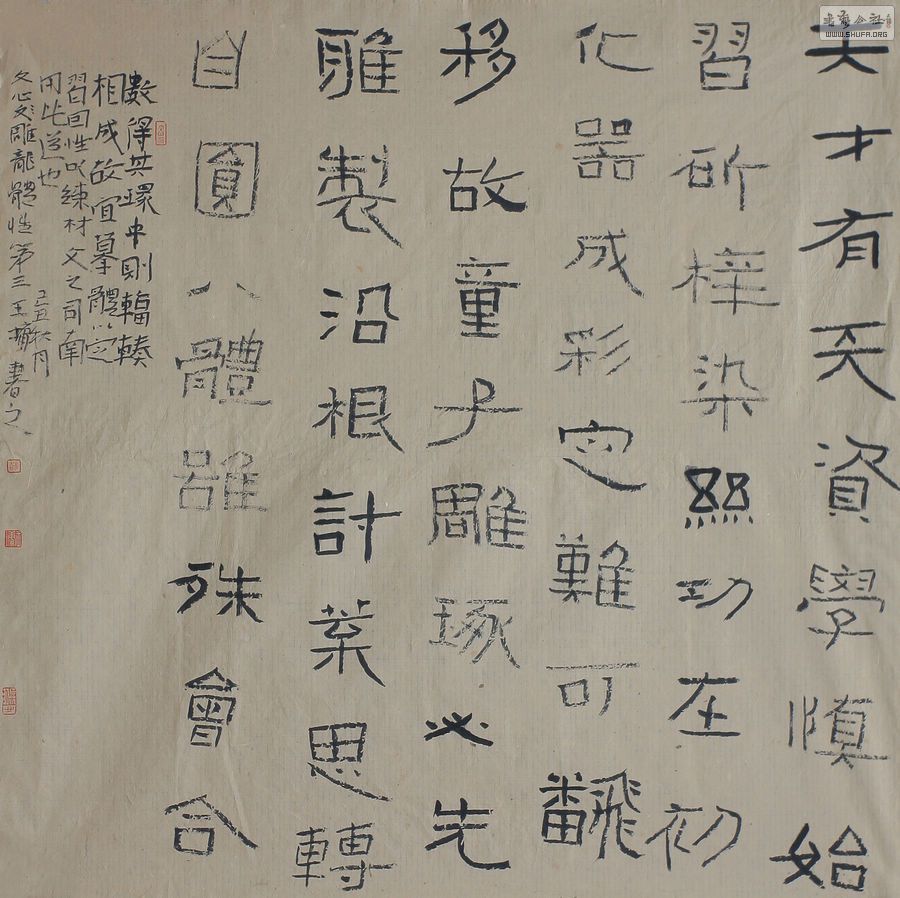 夫才有天資學慎始
習斫梓染絲功在初
化器成彩定難可飜
移故童子雕琢必先
雅製沿根討葉思轉
自圓八體雖殊會合
數得其環中則輻輳
相成故宜摹體以定
習因性以練材文之司南
用此道也
己丑秋月
文心雕龍體性第三王書之
WWW.SHUFA.ORG